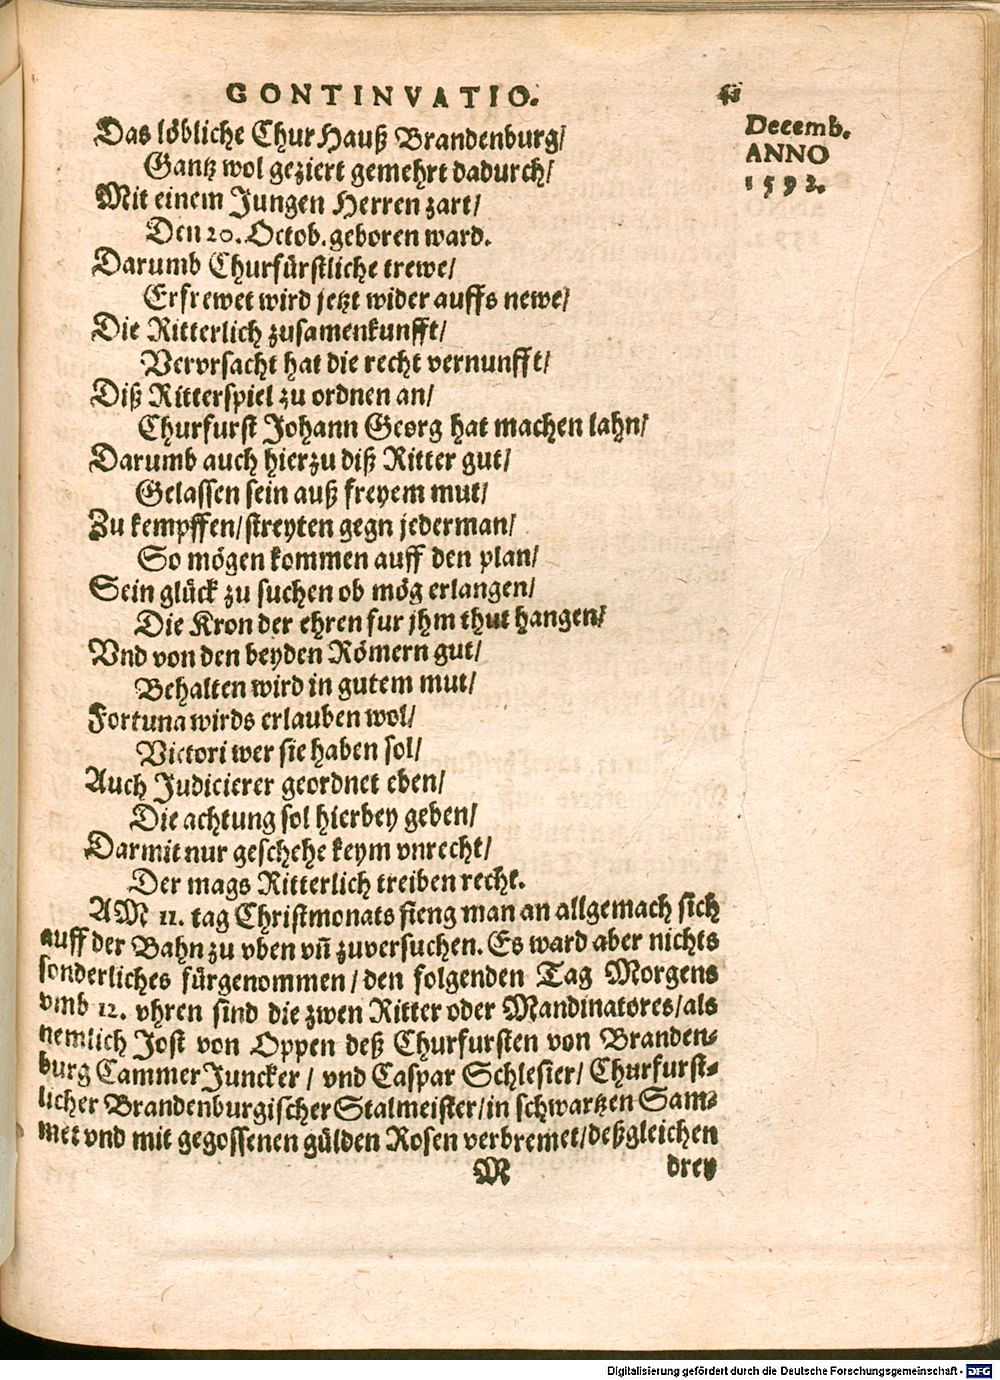 GONTINVATIO. 41
Decemb.
ANNO
1592.
Das löbliche Chur Hauß Brandenburg/
Gantz wol geziert gemehrt dadurch/
Mit einem Jungen Herren zart/
Den 20. Octob. geboren ward.
Darumb Churfürstliche trewe/
Erfrewet wird jetzt wider auffs newe/
Die Ritterlich zusamenkunfft/
Vervrsacht hat die recht vernunfft/
Diß Ritterspiel zu ordnen an/
Churfurst Johann Georg hat machen lahn/
Darumb auch hierzu diß Ritter gut/
Gelassen sein auß freyem mut/
Zu kempffen/streyten gegn jederman/
So mögen kommen auff den plan/
Sein glück zu suchen ob mög erlangen/
Die Kron der ehren fur jhm thut hangen/
Vnd von den beyden Römern gut/
Behalten wird in gutem mut/
Fortuna wirds erlauben wol/
Victori wer sie haben sol/
Auch Judicierer geordnet eben/
Die achtung sol hierbey geben/
Darmit nur geschehe keym vnrecht/
Der mags Ritterlich treiben recht.
AM 11. tag Christmonats fieng man an allgemach sich
auff der Bahn zu vben vñ zuversuchen. Es ward aber nichts
sonderliches fürgenommen/den folgenden Tag Morgens
vmb 12. vhren sind die zwen Ritter oder Mandinatores/als
nemlich Jost von Oppen deß Churfursten von Branden-
burg Cammer Juncker / vnd Caspar Schlesier/ Churfurst-
licher Brandenburgischer Stalmeister/in schwartzen Sam-
met vnd mit gegossenen gülden Rosen verbremet/deßgleichen
M drey
Digitalisierung gefördert durch die Deutsche Forschungsgemeinschaft - DFG